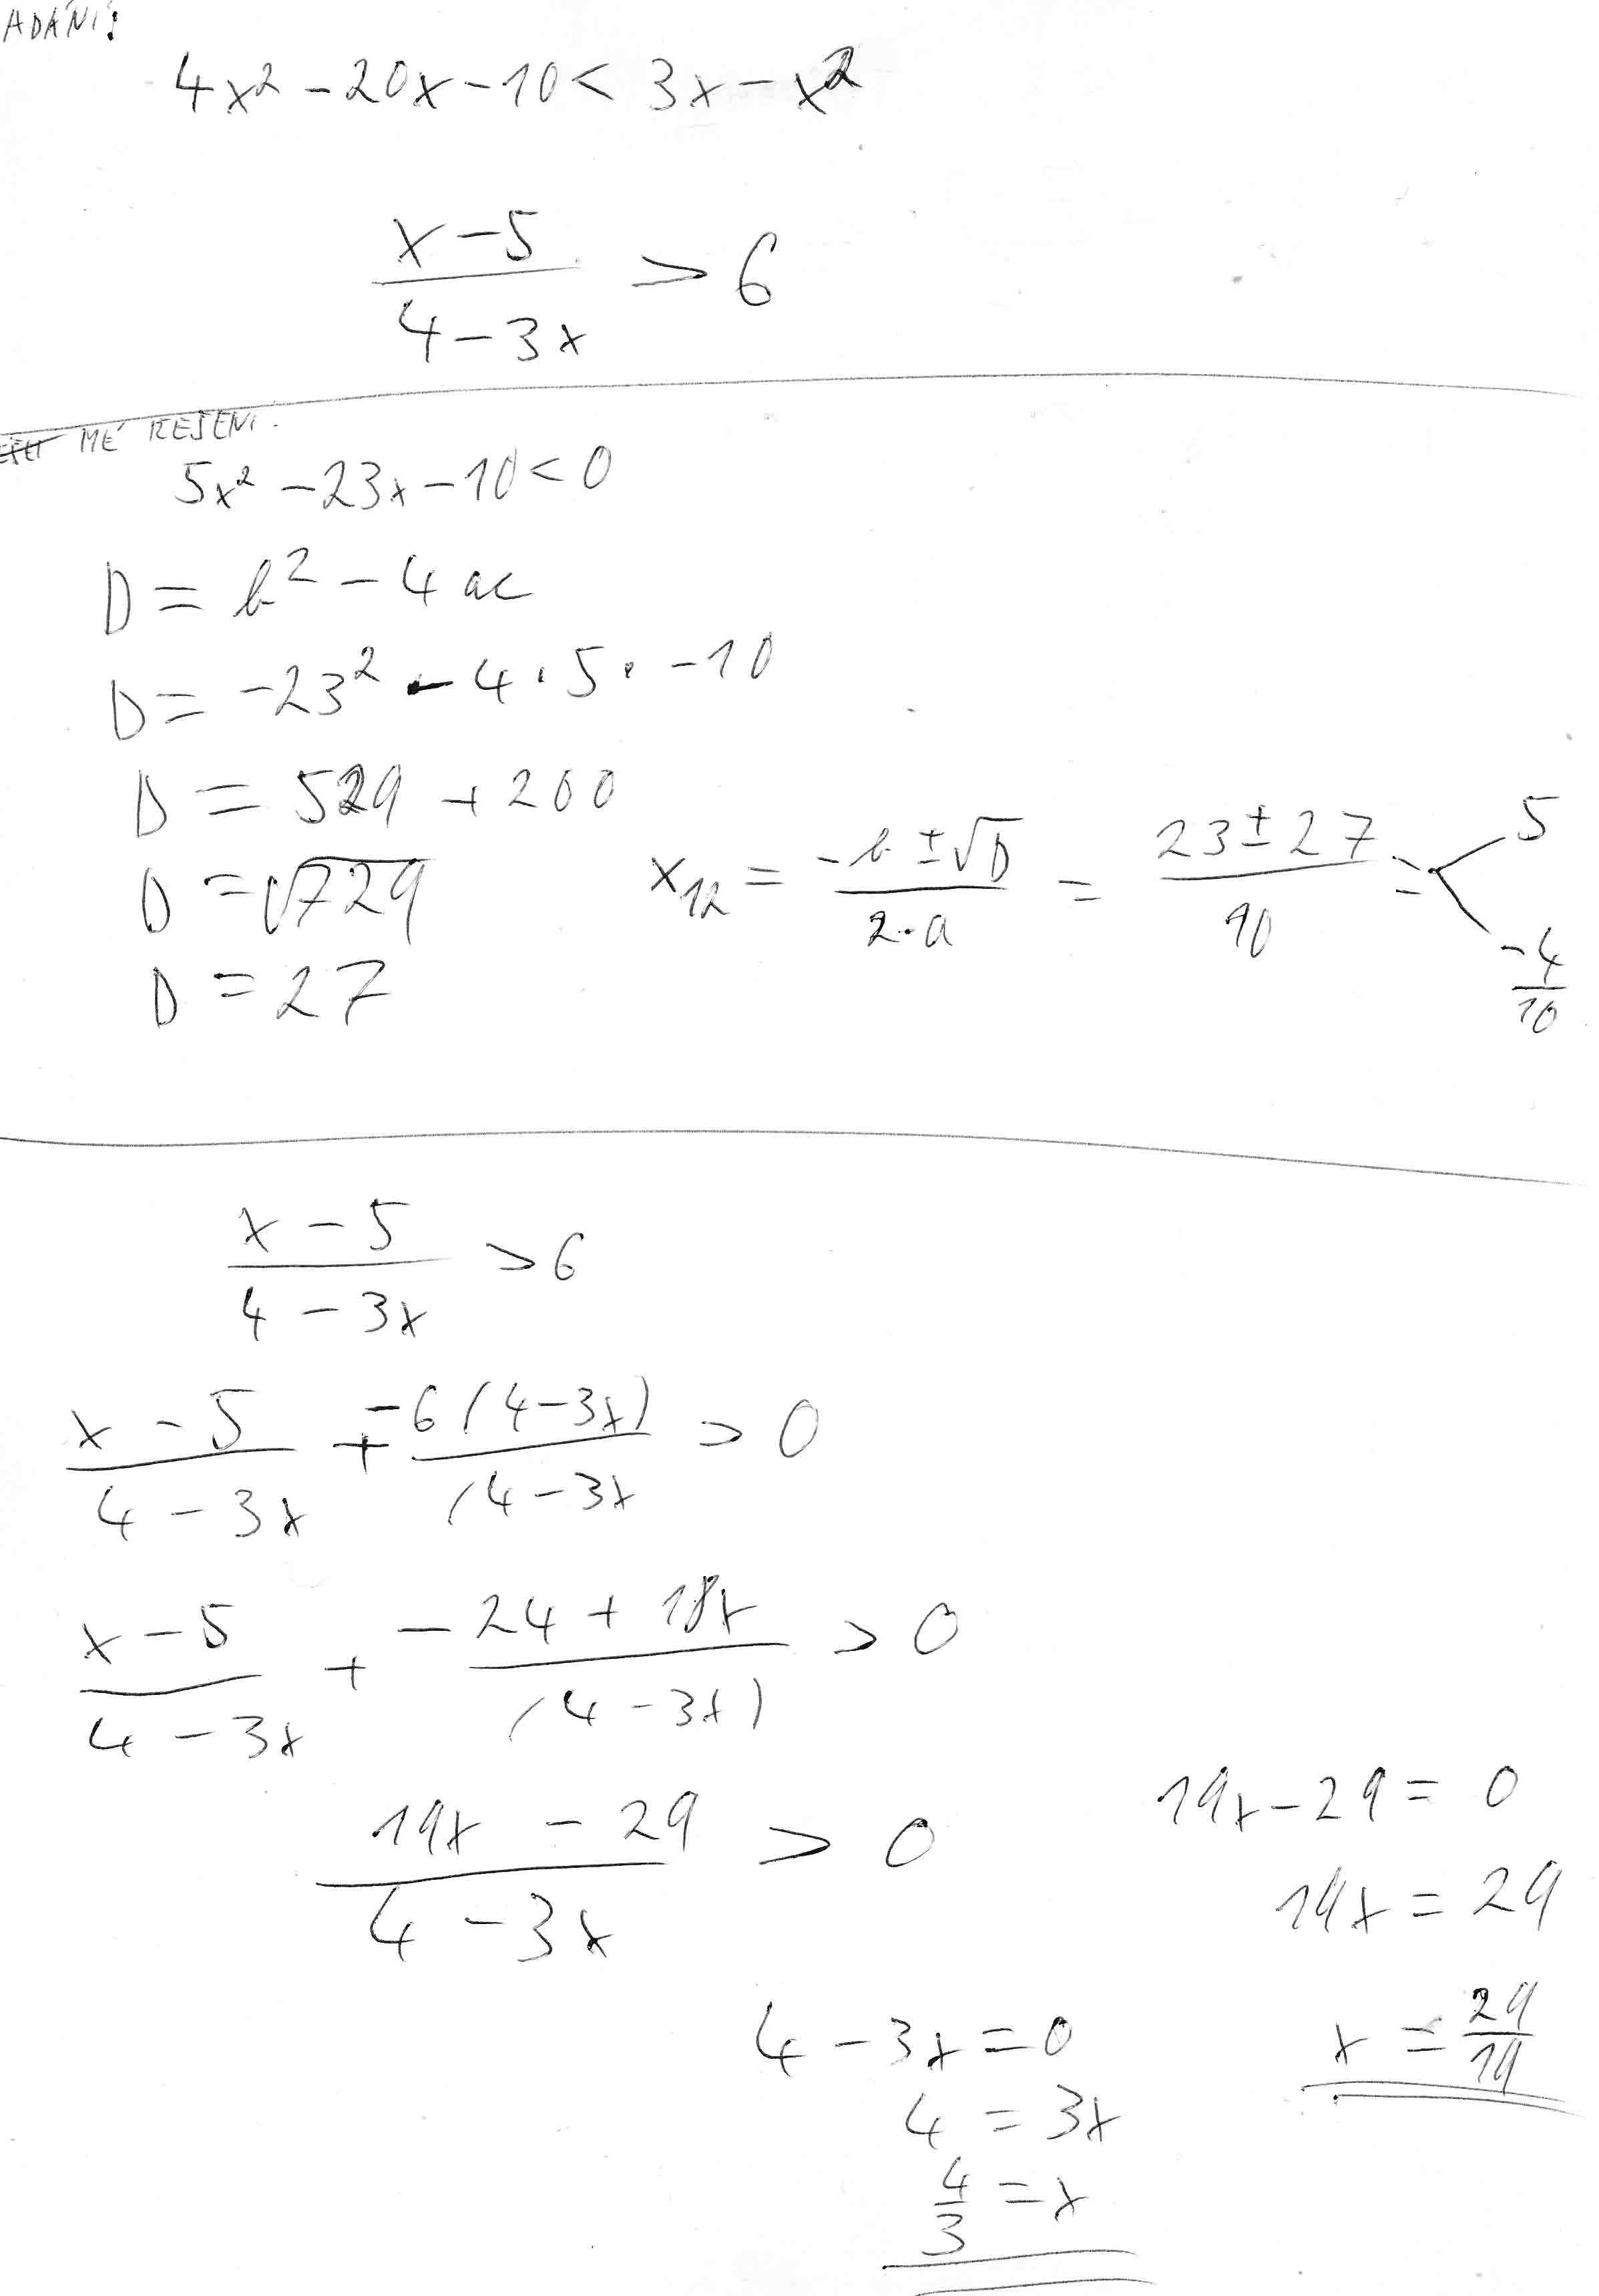 ADÁNÍ:
4x² - 20x - 10 < 3x - x²
x - 5
4 - 3x
> 6
MÉ ŘEŠENÍ.
5x² - 23x - 10 < 0
D = b² - 4ac
D = -23² - 4 · 5 · -10
D = 529 + 200
D = √729
D = 27
x12 = -b ± √D / 2·a = 23 ± 27 / 10 = 5
-4/10
x - 5 / 4 - 3x > 6
x - 5 / 4 - 3x + -6(4 - 3x) / (4 - 3x > 0
x - 5 / 4 - 3x + -24 + 18x / (4 - 3x) > 0
19x - 29 / 4 - 3x > 0
19x - 29 = 0
19x = 29
x = 29/19
4 - 3x = 0
4 = 3x
4/3 = x